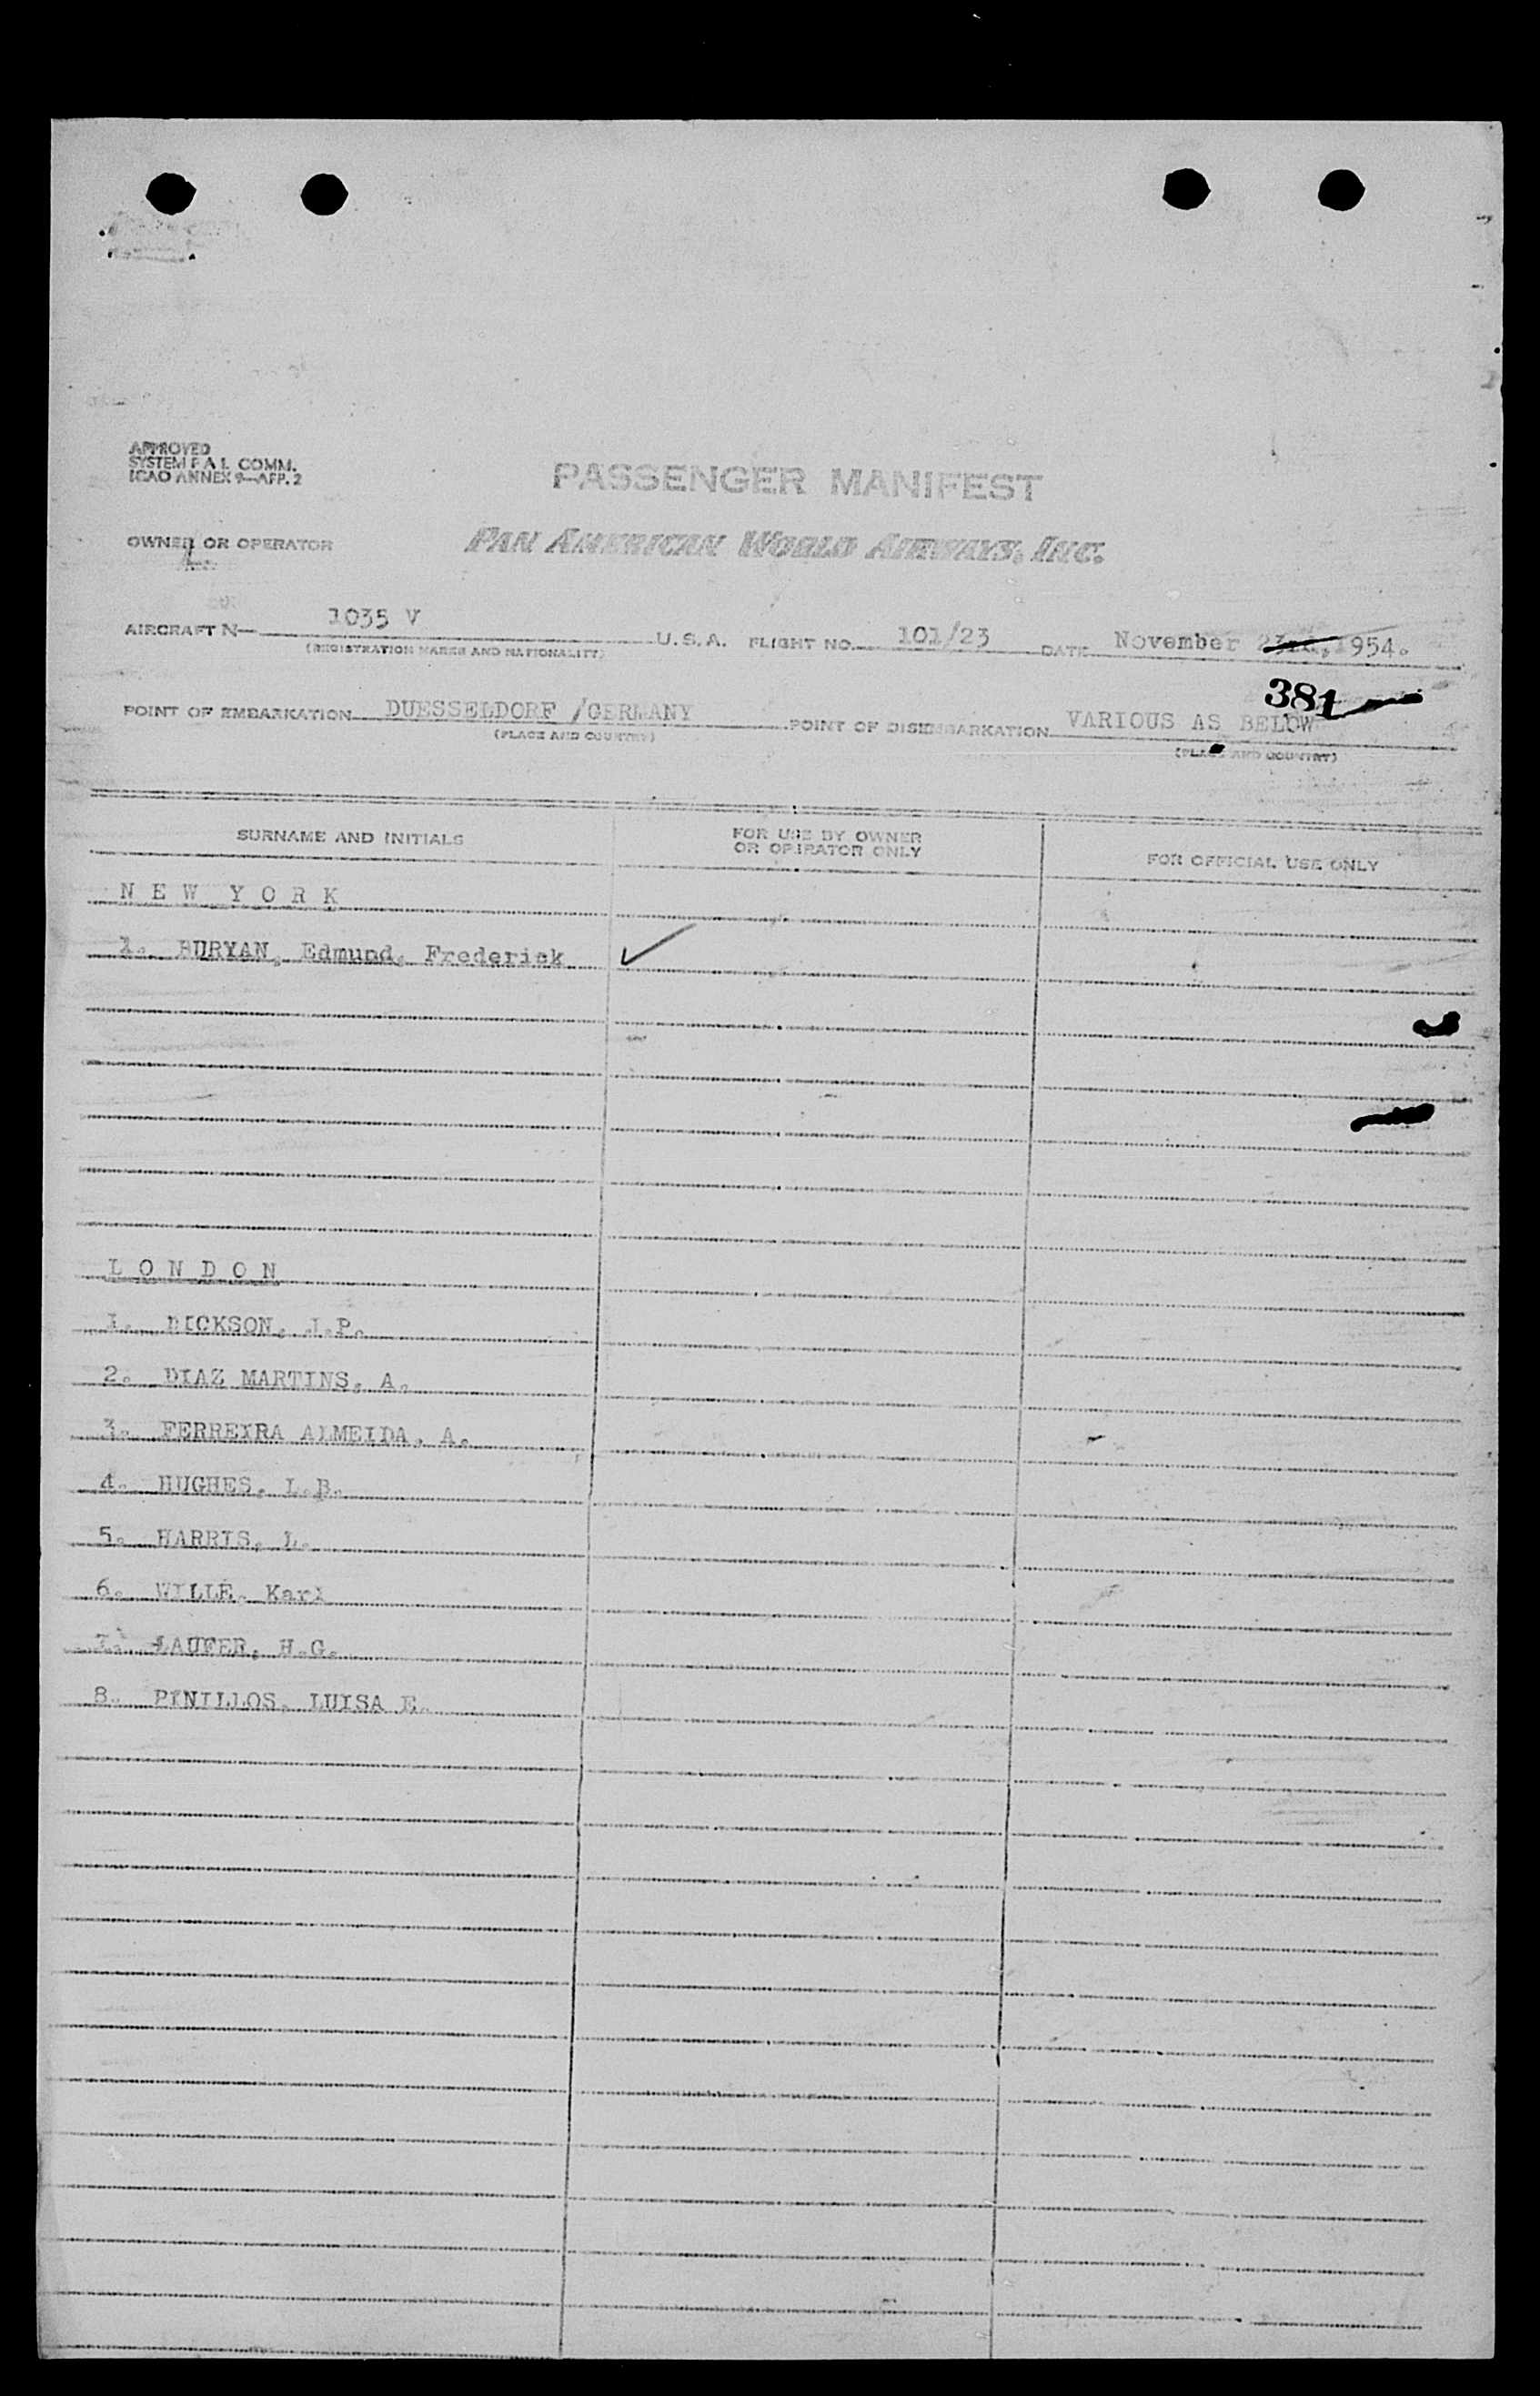 APPROVED
SYSTEM F A L COMM.
ICAO ANNEX 9—APP. 2
PASSENGER MANIFEST
OWNER OR OPERATOR PAN AMERICAN WORLD AIRWAYS, INC.
AIRCRAFT N— 1035 V U.S.A. FLIGHT NO. 101/23 DATE November 23rd, 1954.
(REGISTRATION MARKS AND NATIONALITY)
381
POINT OF EMBARKATION DUESSELDORF /GERMANY POINT OF DISEMBARKATION VARIOUS AS BELOW
(PLACE AND COUNTRY) (PLACE AND COUNTRY)
SURNAME AND INITIALS FOR USE BY OWNER OR OPERATOR ONLY FOR OFFICIAL USE ONLY
N E W Y O R K
1. BURYAN, Edmund, Frederick ✓
L O N D O N
1. DICKSON, J.P.
2. DIAZ MARTINS, A.
3. FERREIRA ALMEIDA, A.
4. HUGHES, L.B.
5. HARRIS, L.
6. WILLE, Karl
7. LAUFER, H.G.
8. PINILLOS, LUISA E.